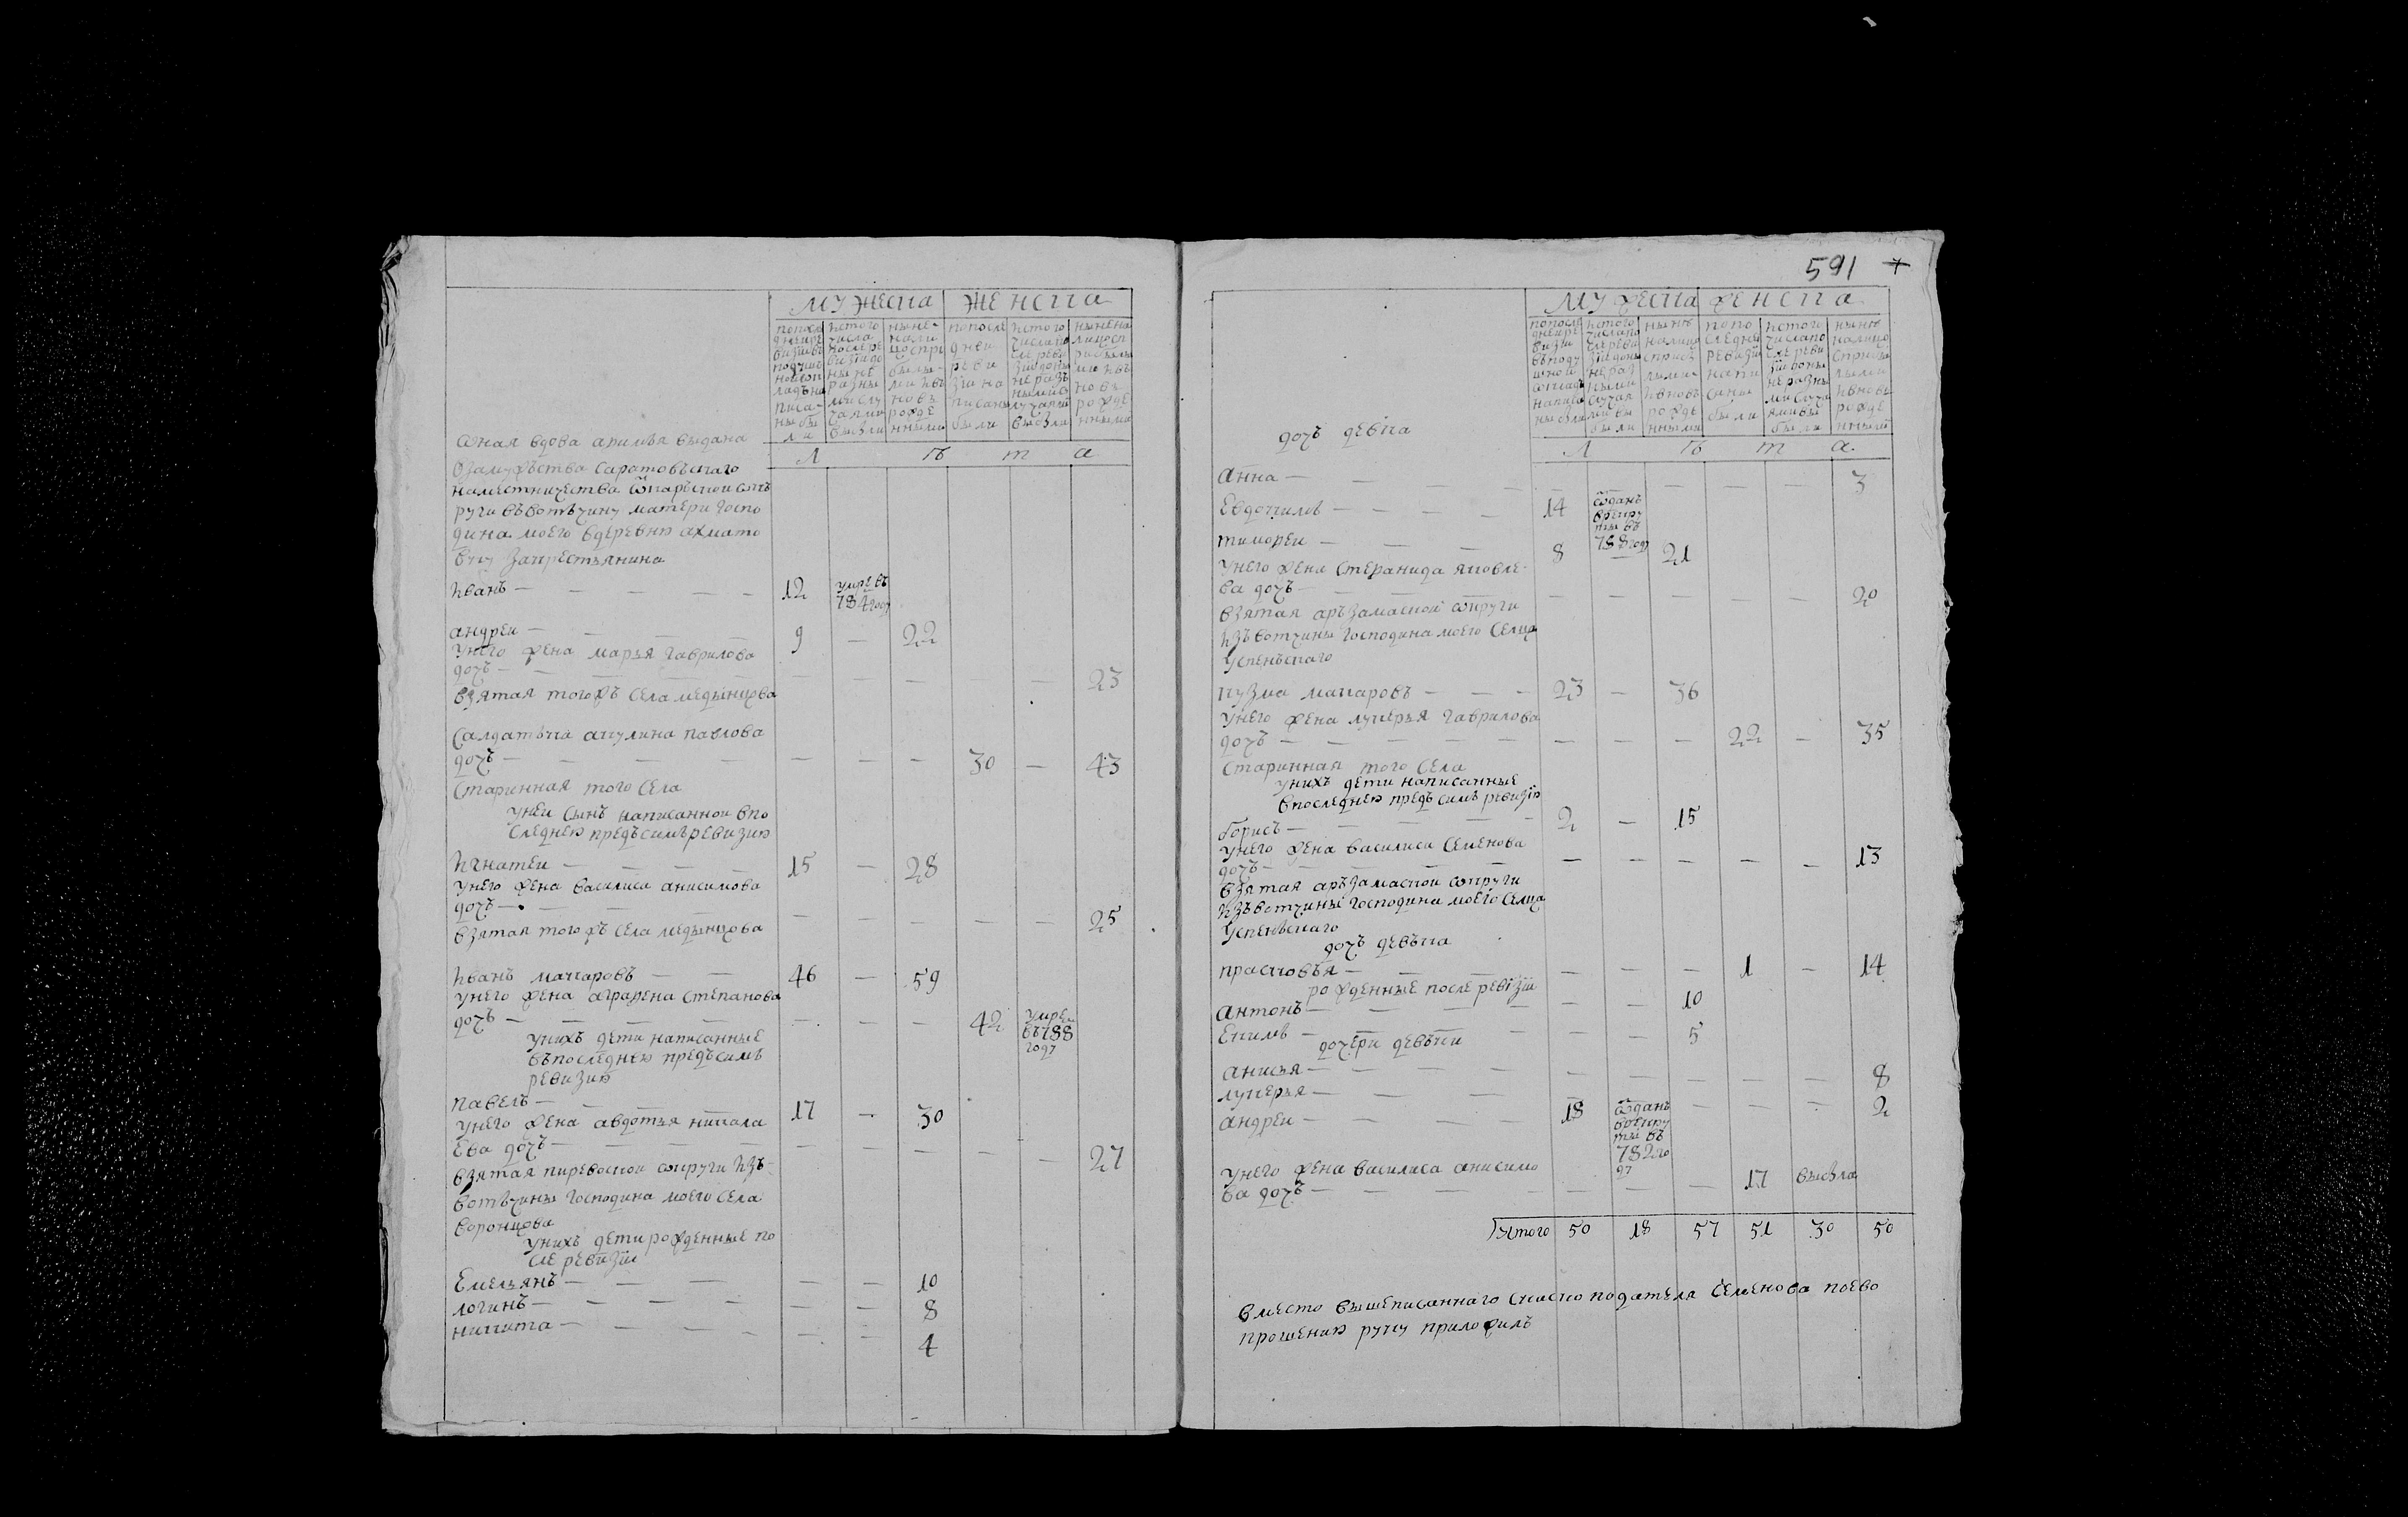 мужеска женска
попосле
дней ре
визии въ
подуш
ной ок
ладъ на
писа-
ны бы
ли
истого
числа
после ре
визии до
ныне
разны
ми слу
чаями
выбыли
ныне-
нали
цо спри
былы-
ми ивъ
новъ
рожде
нными
попосле
дней
реви
зии на
писаны
были
исторо
числа по
сле реви
зии доны
не разъ
ными с
лучаями
выбыли
ныне на
лицо сп
рибылы
ми ивъ
новъ
рожде
нными
л ѣ т а
оная вдова акилья выдана
взамужъства саратовъскаго
наместничества
руги въвотъчину матери госпо
дина моего вдеревню ахмато
вку закрестьянина
иванъ — 12 умре въ 784 году
андреи — 9 — 22
унего жена марья гаврилова
дочь — — — — — — 23
взятая тогожъ села медынцова
салдатъка акулина павлова
дочь — — — — 30 — 43
старинная того села
унеи сынъ написаннои впо
следнею предъсимъ ревизию
игнатеи — 15 — 28
унего жена василиса анисимова
дочь — — — — — — 25
взятая тогожъ села медынцова
иванъ макаровъ — 46 — 59
унего жена аграфена степанова
дочь — — — — 42 умре въ 788 году
унихъ дети написанные
въпоследнею предъсимъ
ревизию
павелъ — 17 — 30
унего жена авдотья никала
ева дочь — — — — — — 27
взятая пиревоскои округи изъ-
вотъчины господина моего села
воронцова
унихъ дети рожденные по
сле ревизии
емельянъ — — — 10
логинъ — — — 8
никита — — — 4
591
мужеска женска
попосле
дней ре
визии
въподу
шной
окладъ
написа
ны были
исторо
числа по
сле реви
зии доны
не раз
ными
случая
ми вы
были
ныне
налицо
сприбы
лыми
ивновъ
рожде
нными
попо
следней
ревизии
напи
саны
были
исторо
числа по
сле реви
зии доны
не разны
ми случа
ями вы
были
ныне
налицо
сприбы
лыми
ивновь
рожде
нными
л ѣ т а
дочь девка
анна — — — — — — 3
евдокимъ — 14 отданъ врекруты въ 788 году
тимофеи — 8 — 21
унего жена стефанида яковле-
ва дочь — — — — — — 20
взятая аръзамаскои округи
изъвотчины господина моего селца
успенъскаго
кузма макаровъ — 23 — 36
унего жена лукерья гаврилова
дочь — — — — 22 — 35
старинная того села
унихъ дети написанные
впоследнею предъ симъ ревизию
борисъ — 2 — 15
унего жена василиса семенова
дочь — — — — — — 13
взятая аръзамаскои округи
изъвотчины господина моего селца
успенъскаго
дочь девъка
прасковья — — — — 1 — 14
рожденные после ревизии
антонъ — — — 10
екимъ — — — 5
дочери девъки
анисья — — — — — — 8
лукерья — — — — — — 2
андреи — 18 отданъ врекруты въ 782 году
унего жена василиса анисимо
ва дочь — — — — 17 выбыла
итого 50 18 57 51 30 50
вместо вышеписаннаго скаско подателя семенова поево
прошению руку приложилъ